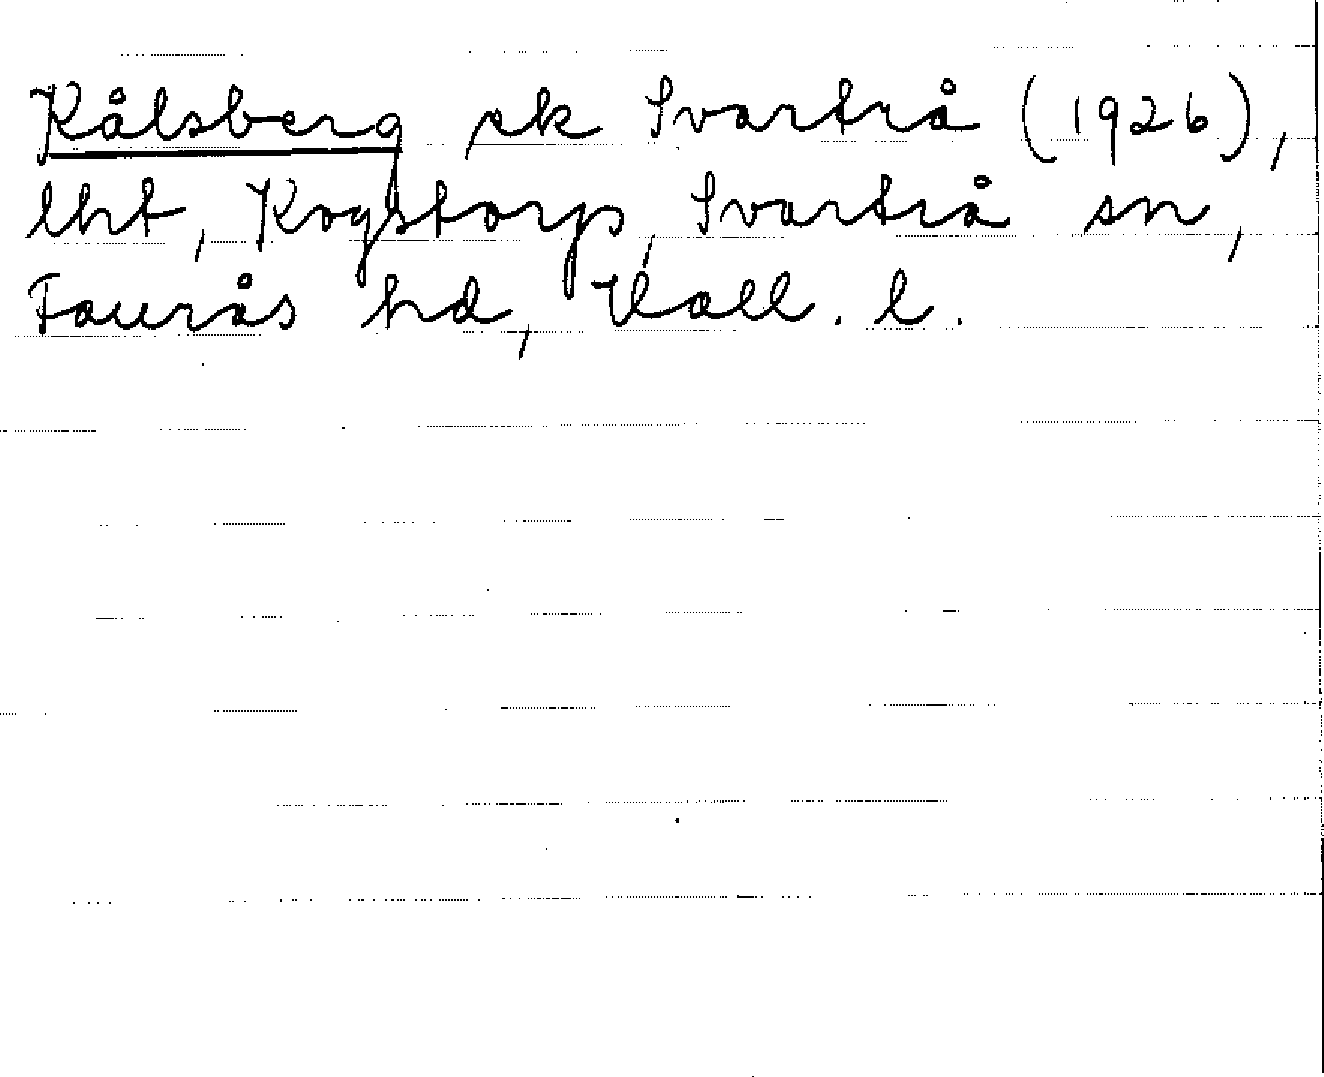 Kålsberg sk Svartrå (1926),
lht, Kogstorp, Svartrå sn,
Faurås hd, Hall. l.